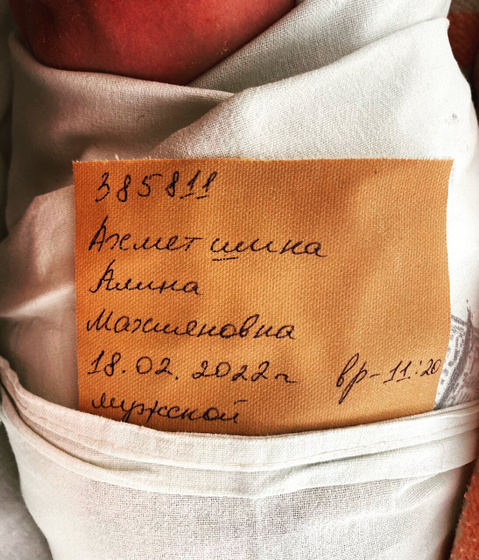 385811
Ахметшина
Алина
Махияновна
18.02.2022г вр-11:20
мужской